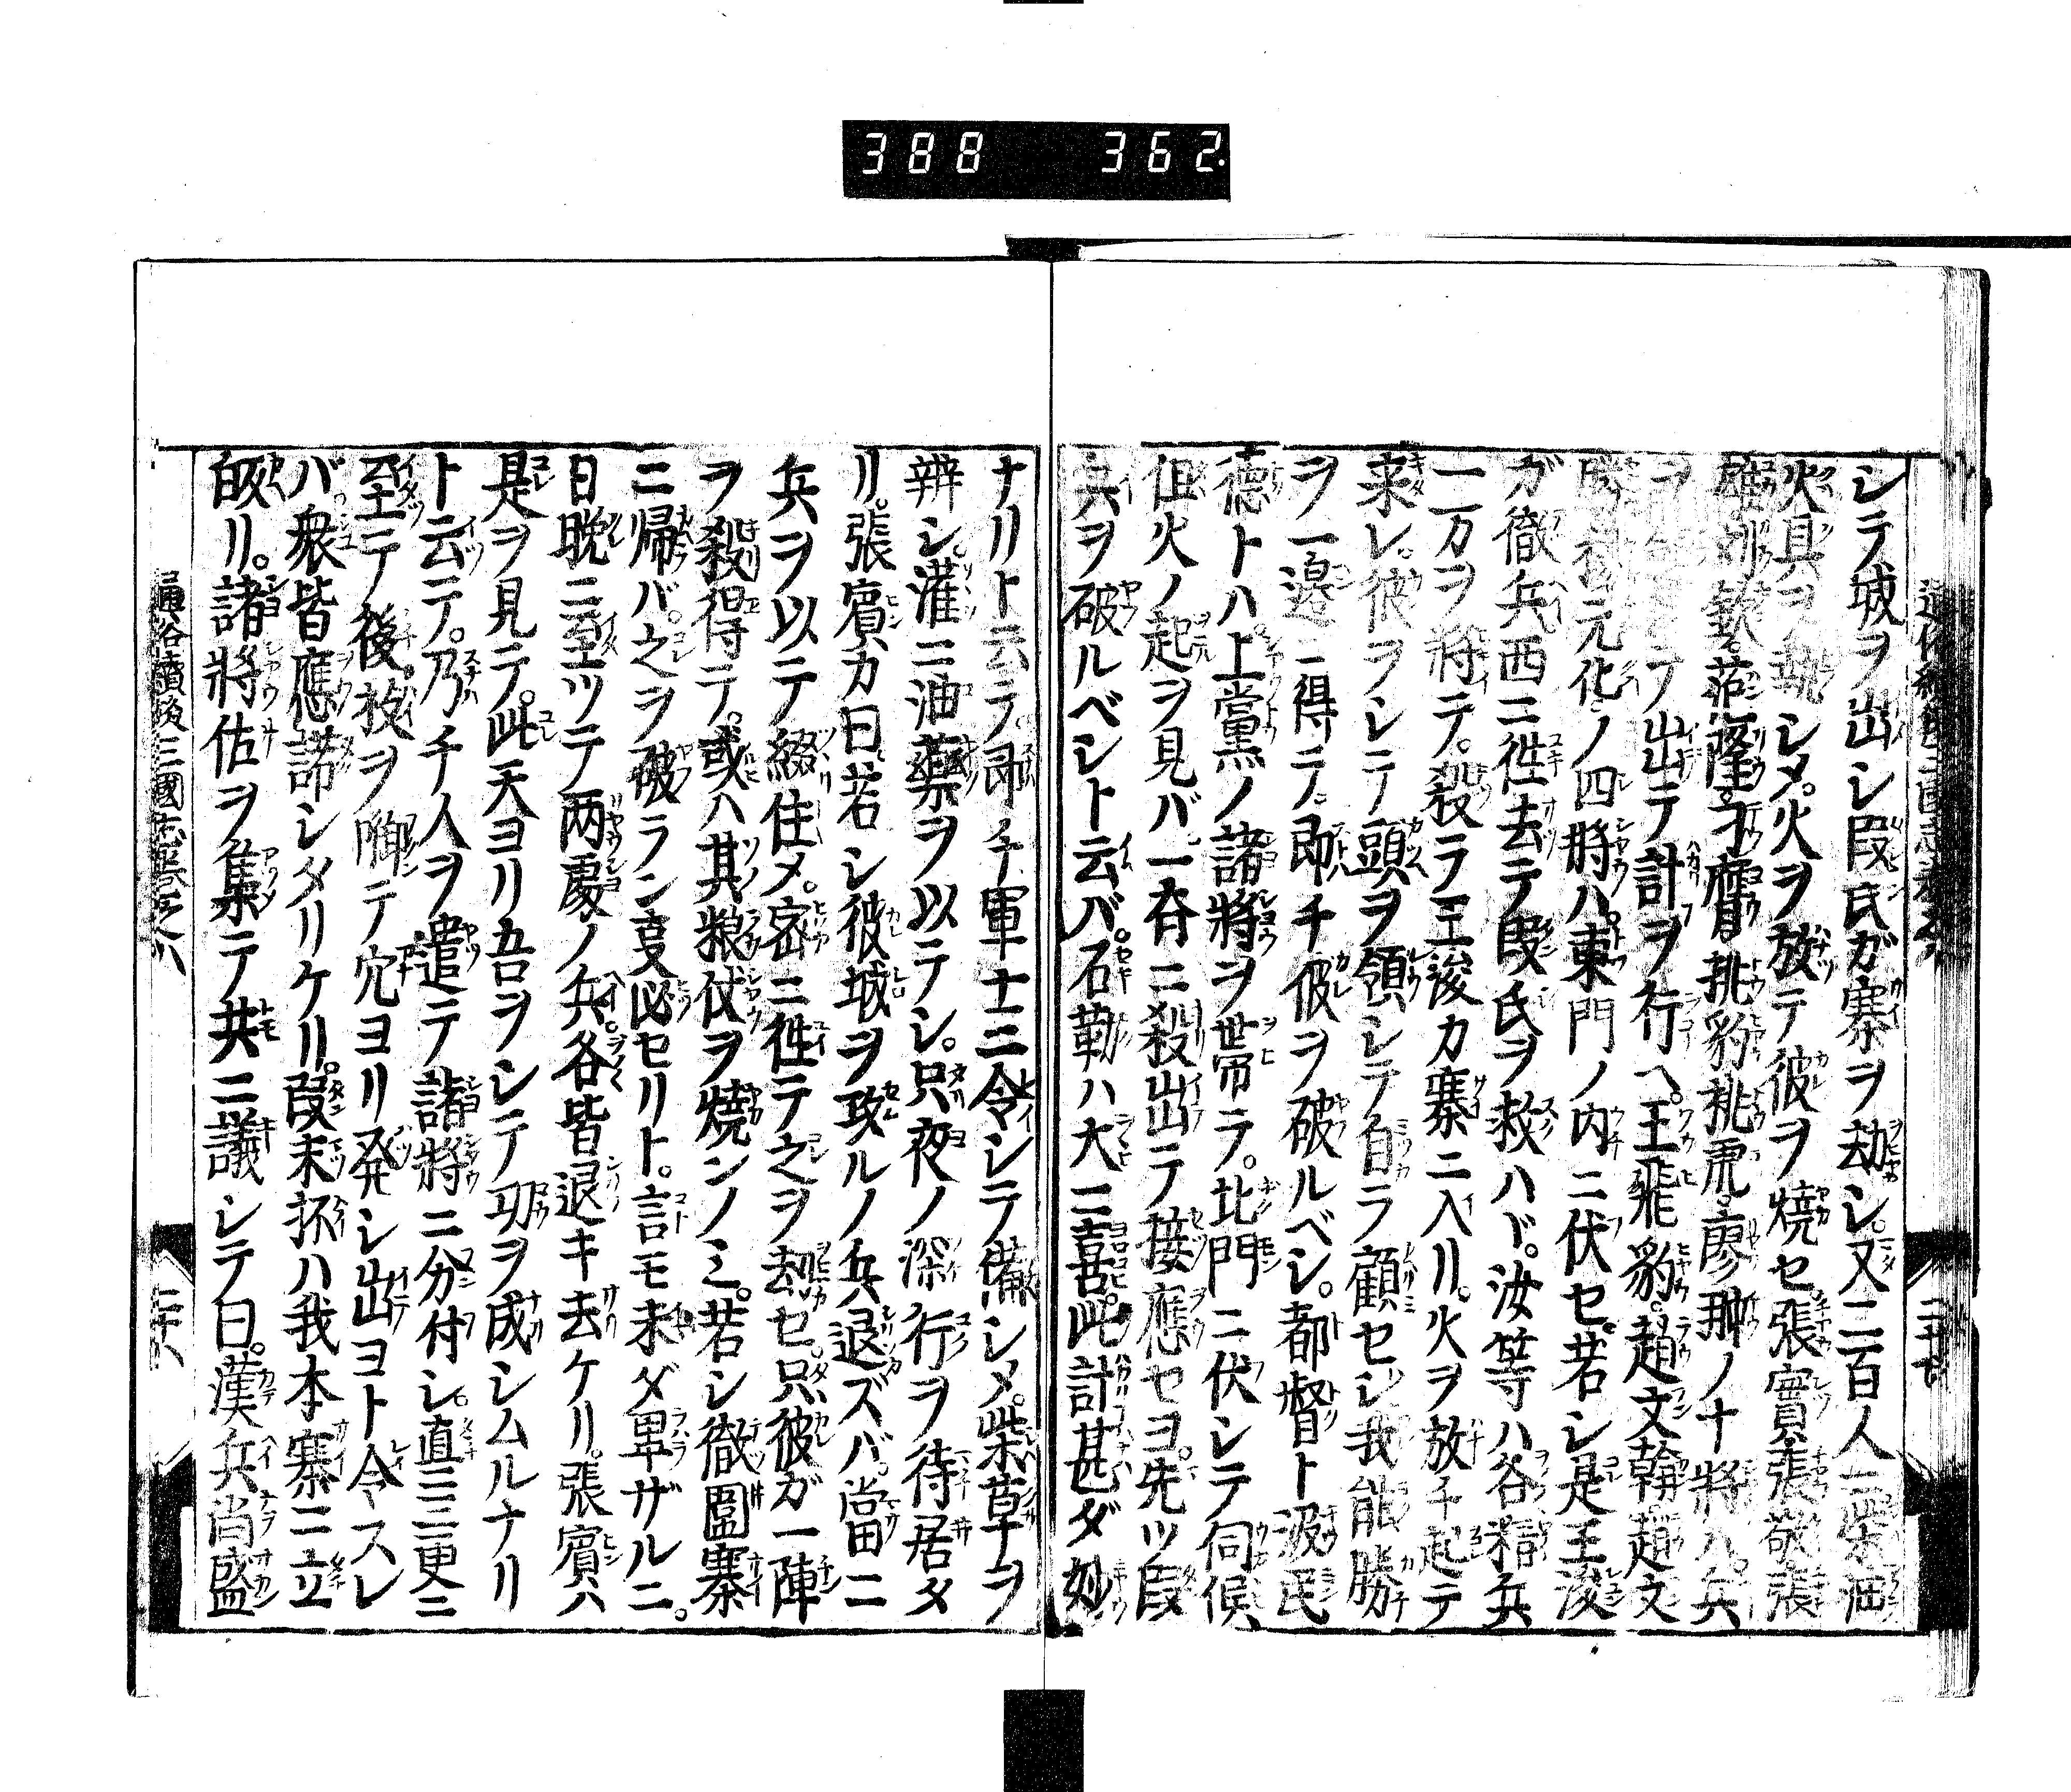 388 362
シテ城ヲ出シ段氏ガ寨ヲ劫シ又二百人ニ柴
火具ヲ シメ火ヲ放テ彼ヲ燒セ張實張敬張
 ノ十將ハ兵
ヲ テ出テ計ヲ行ヘ王飛豹趙文幹趙文
勝 元化ノ四將ハ東門ノ内ニ伏セ若シ是王浚
ガ徹兵西ニ徃去テ段氏ヲ救ハヾ汝等ハ各 兵
一万ヲ將テ殺ラ王浚カ寨ニ入リ火ヲ放チ起テ
来レ彼ヲシテ頭ヲ領シテ自ラ顧セシ我能勝
ヲ一邉ニ得テ即チ彼ヲ破ルベシ都督ト汲民
德トハ上黨ノ諸將ヲ帯テ北門ニ伏シテ伺候
但火ノ起ヲ見バ一斉ニ殺出テ接應セヨ先ツ段
兵ヲ破ルベシト云バ石勒ハ大ニ喜此計甚ダ妙
ナリト云テ即チ軍士ニ令シテ備シメ柴草ヲ
辨シ灌ニ油藥ヲ以テシ只夜ノ深行ヲ待居タ
リ張賓カ曰若シ彼城ヲ攻ルノ兵退ズバ當ニ
兵ヲ以テ綴住メ密ニ徃テ之ヲ刼セ只彼ガ一陣
ヲ殺得テ或ハ其粮仗ヲ燒ンノミ若シ徹圍寨
ニ帰バ之ヲ破ラン亊必セリト言モ未ダ畢ザルニ
日晩ニ至ツテ両處ノ兵各皆退キ去ケリ張賓ハ
是ヲ見テ此天ヨリ吾ヲシテ功ヲ成シムルナリ
ト云テ乃チ人ヲ遣テ諸將ニ分付シ直ニ三更ニ
至テ後枚ヲ啣テ穴ヨリ発シ出ヨト令スレ
バ衆皆應諾シタリケリ段末抷ハ我本寨ニ立
皈リ諸將佐ヲ集テ共ニ議シテ曰漢兵尚盛
通俗續後三國志巻之八
二十八